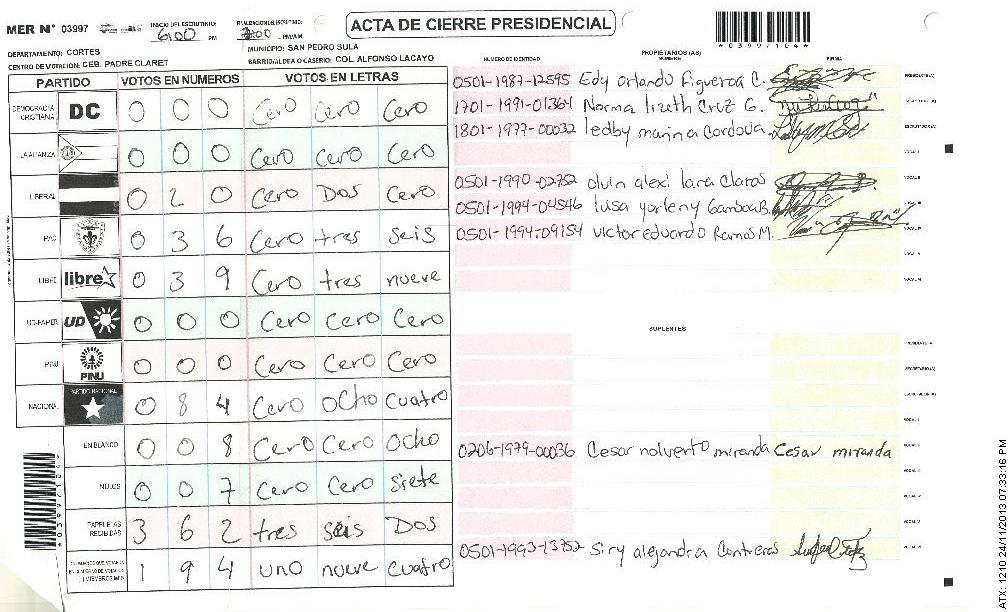 MER Nº 03997
INICIO DEL ESCRUTINIO: 6:00 PM
ACTA DE CIERRE PRESIDENCIAL
*03997104*
DEPARTAMENTO: CORTES
MUNICIPIO: SAN PEDRO SULA
CENTRO DE VOTACION: CEB. PADRE CLARET
BARRIO/ALDEA O CASERIO: COL ALFONSO LACAYO
PARTIDO VOTOS EN NUMEROS VOTOS EN LETRAS
DEMOCRACIA CRISTIANA DC 0 0 0 Cero Cero Cero
LA ALIANZA 0 0 0 Cero Cero Cero
LIBERAL 0 2 0 Cero Dos Cero
PAC 0 3 6 Cero tres seis
LIBRE libre 0 3 9 Cero tres nueve
UD-FAPER UD 0 0 0 Cero Cero Cero
PINU PINU 0 0 0 Cero Cero Cero
NACIONAL PARTIDO NACIONAL 0 8 4 Cero ocho cuatro
EN BLANCO 0 0 8 Cero Cero ocho
NULOS 0 0 7 Cero Cero siete
PAPELETAS RECIBIDAS 3 6 2 tres seis Dos
1 9 4 uno nueve cuatro
*03997104*
PROPIETARIOS (AS)
NUMERO DE IDENTIDAD NOMBRE FIRMA
0501-1987-12595 Edy Orlando Figueroa C. PRESIDENTE(A)
1701-1991-01364 Norma lizeth Cruz G. SECRETARIO(A)
1801-1977-00032 ledby marina Cordova. ESCRUTADOR(A)
VOCAL I
0501-1990-02752 olvin alexi lara Claros VOCAL II
0501-1994-04546 lusa yorleny Gamboa B. VOCAL III
0501-1994-09154 Victor eduardo Ramos M. VOCAL IV
VOCAL V
VOCAL VI
SUPLENTES
PRESIDENTE(A)
SECRETARIO(A)
ESCRUTADOR(A)
VOCAL I
0206-1979-00036 Cesar nolverto miranda Cesar miranda VOCAL II
VOCAL III
VOCAL IV
VOCAL V
0501-1993-13752 Siry alejandra Contreras VOCAL VI
ATX: 1210 24/11/2013 07:33:16 PM